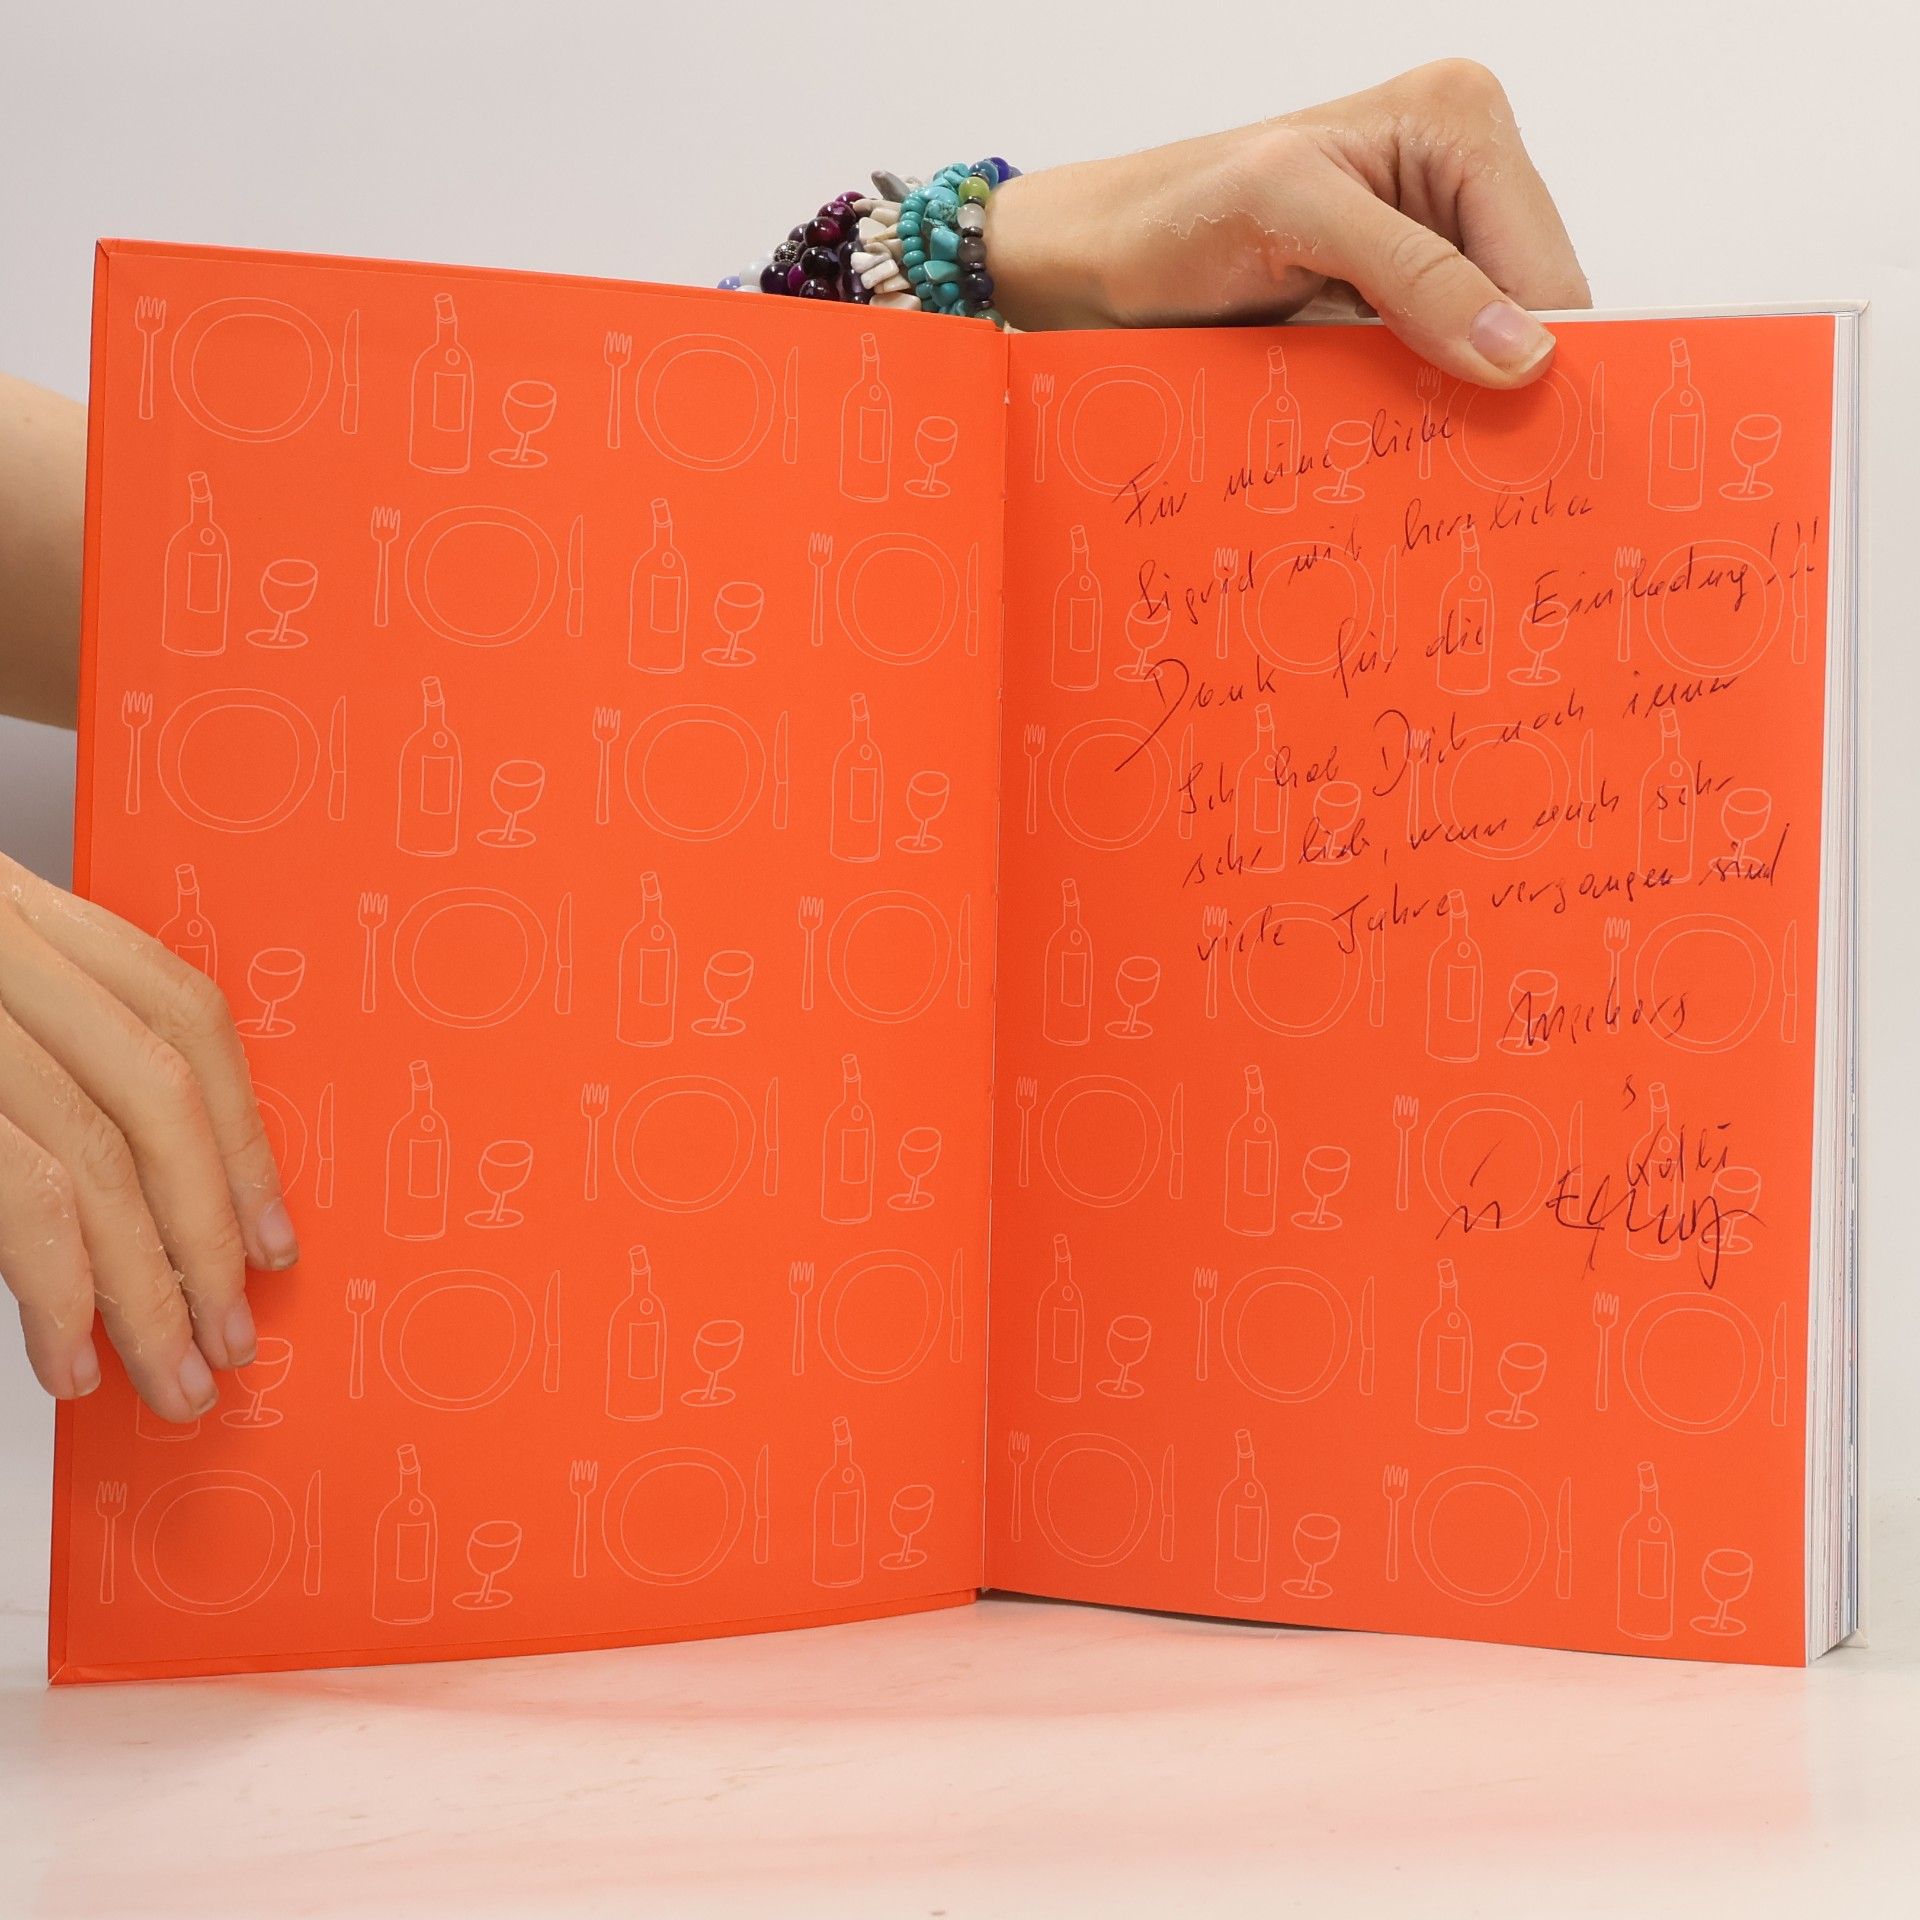 Für meine liebe
Sigrid mit herzlichen
Dank für die Einladung!!!
Ich hab Dich noch immer
sehr lieb, wenn auch sehr
viele Jahre vergangen sind
Ingeborg